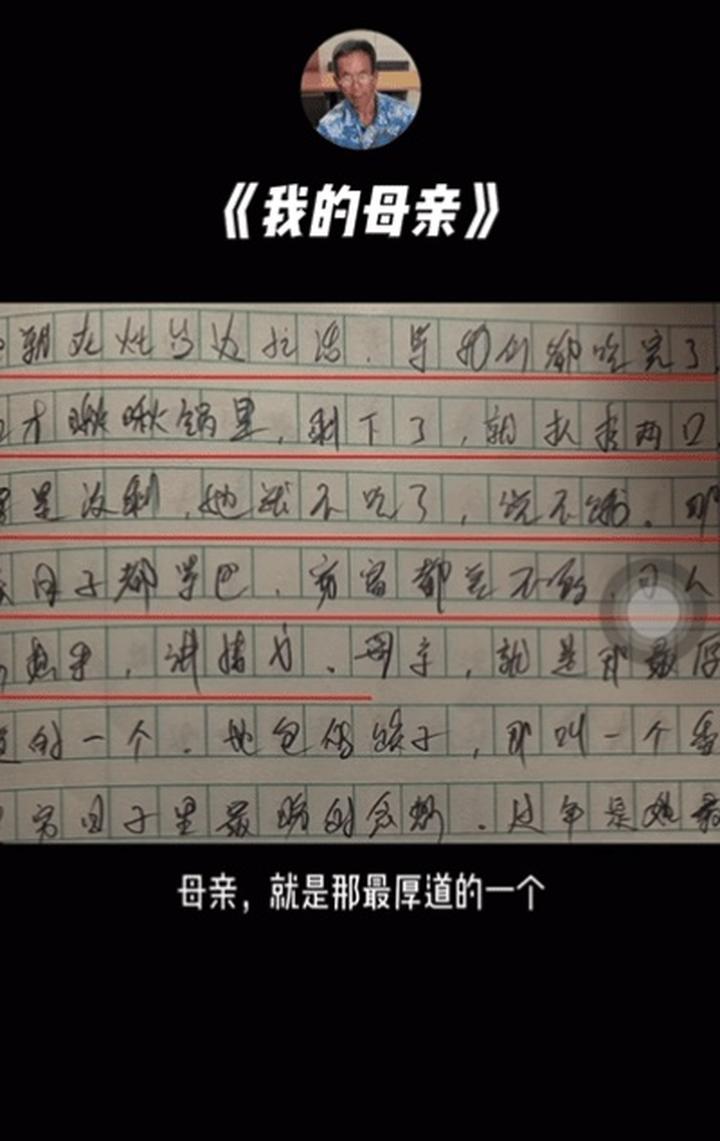 《我的母亲》
在灶边忙活，等我们都吃完了，
才瞅瞅锅里，剩下了，就扒拉两口
是没�，她就不吃了，说不饿。那
日子都紧巴，穷富都差不多，人
热乎，讲情分。母亲，就是那最厚
道的一个。她包的饺子，那叫一个香
穷日子里最的念想。过年是她最
母亲，就是那最厚道的一个